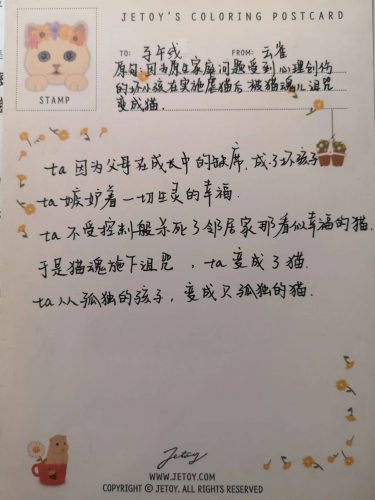 JETOY'S COLORING POSTCARD
STAMP
TO: 寻午戌 FROM: 云雀
原句:因为原生家庭问题受到心理创伤
的坏小孩在实施虐猫后被猫魂儿诅咒
变成猫.
ta 因为父母在成长中的缺席.成了坏孩子
ta 嫉妒着一切生灵的幸福.
ta 不受控制般杀死了邻居家那看似幸福的猫.
于是猫魂施下诅咒,ta 变成了猫.
ta 从孤独的孩子,变成只孤独的猫.
Jetoy
WWW.JETOY.COM
COPYRIGHT © JETOY. ALL RIGHTS RESERVED